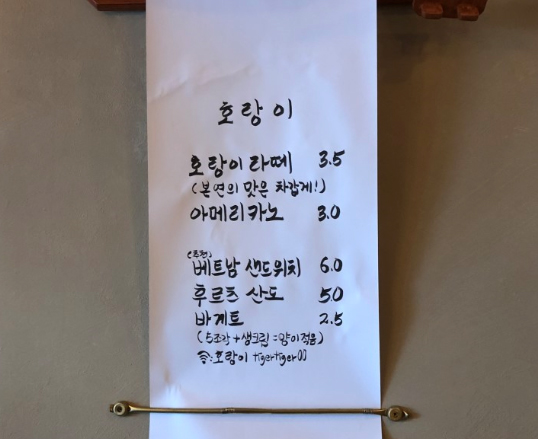 호랑이
호랑이 라떼 3.5
(본연의 맛은 차갑게!)
아메리카노 3.0
(추천)
베트남 샌드위치 6.0
후르츠 산도 5.0
바게트 2.5
(5조각+생크림=양이적음)
:호랑이 tigertiger00